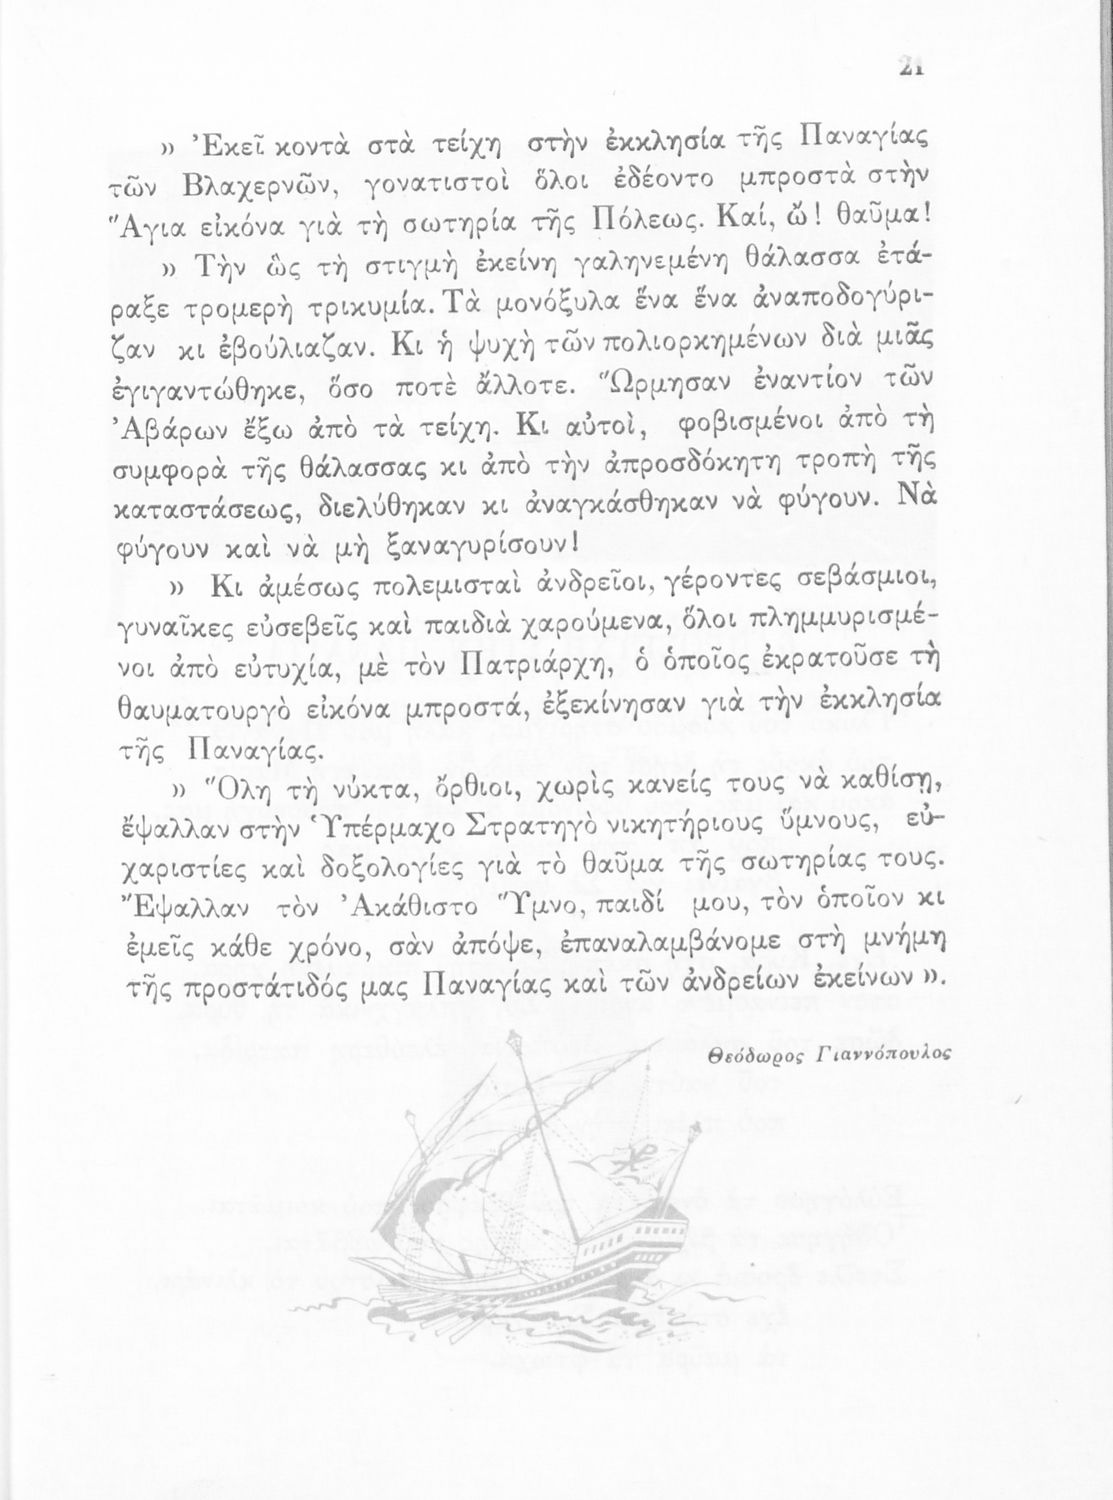 21
» Ἐκεῖ κοντὰ στὰ τείχη στὴν ἐκκλησία τῆς Παναγίας
τῶν Βλαχερνῶν, γονατιστοὶ ὅλοι ἐδέοντο μπροστὰ στὴν
Ἅγια εἰκόνα γιὰ τὴ σωτηρία τῆς Πόλεως. Καί, ὤ! θαῦμα!
» Τὴν ὣς τὴ στιγμὴ ἐκείνη γαληνεμένη θάλασσα ἐτά-
ραξε τρομερὴ τρικυμία. Τὰ μονόξυλα ἕνα ἕνα ἀναποδογύρι-
ζαν κι ἐβούλιαζαν. Κι ἡ ψυχὴ τῶν πολιορκημένων διὰ μιᾶς
ἐγιγαντώθηκε, ὅσο ποτὲ ἄλλοτε. Ὥρμησαν ἐναντίον τῶν
Ἀβάρων ἔξω ἀπὸ τὰ τείχη. Κι αὐτοὶ, φοβισμένοι ἀπὸ τὴ
συμφορὰ τῆς θάλασσας κι ἀπὸ τὴν ἀπροσδόκητη τροπὴ τῆς
καταστάσεως, διελύθηκαν κι ἀναγκάσθηκαν νὰ φύγουν. Νὰ
φύγουν καὶ νὰ μὴ ξαναγυρίσουν!
» Κι ἀμέσως πολεμισταὶ ἀνδρεῖοι, γέροντες σεβάσμιοι,
γυναῖκες εὐσεβεῖς καὶ παιδιὰ χαρούμενα, ὅλοι πλημμυρισμέ-
νοι ἀπὸ εὐτυχία, μὲ τὸν Πατριάρχη, ὁ ὁποῖος ἐκρατοῦσε τὴ
θαυματουργὸ εἰκόνα μπροστά, ἐξεκίνησαν γιὰ τὴν ἐκκλησία
τῆς Παναγίας.
» Ὅλη τὴ νύκτα, ὄρθιοι, χωρὶς κανείς τους νὰ καθίσῃ,
ἔψαλλαν στὴν Ὑπέρμαχο Στρατηγὸ νικητήριους ὕμνους, εὐ-
χαριστίες καὶ δοξολογίες γιὰ τὸ θαῦμα τῆς σωτηρίας τους.
Ἔψαλλαν τὸν Ἀκάθιστο Ὕμνο, παιδί μου, τὸν ὁποῖον κι
ἐμεῖς κάθε χρόνο, σὰν ἀπόψε, ἐπαναλαμβάνομε στὴ μνήμη
τῆς προστάτιδός μας Παναγίας καὶ τῶν ἀνδρείων ἐκείνων ».
Θεόδωρος Γιαννόπουλος